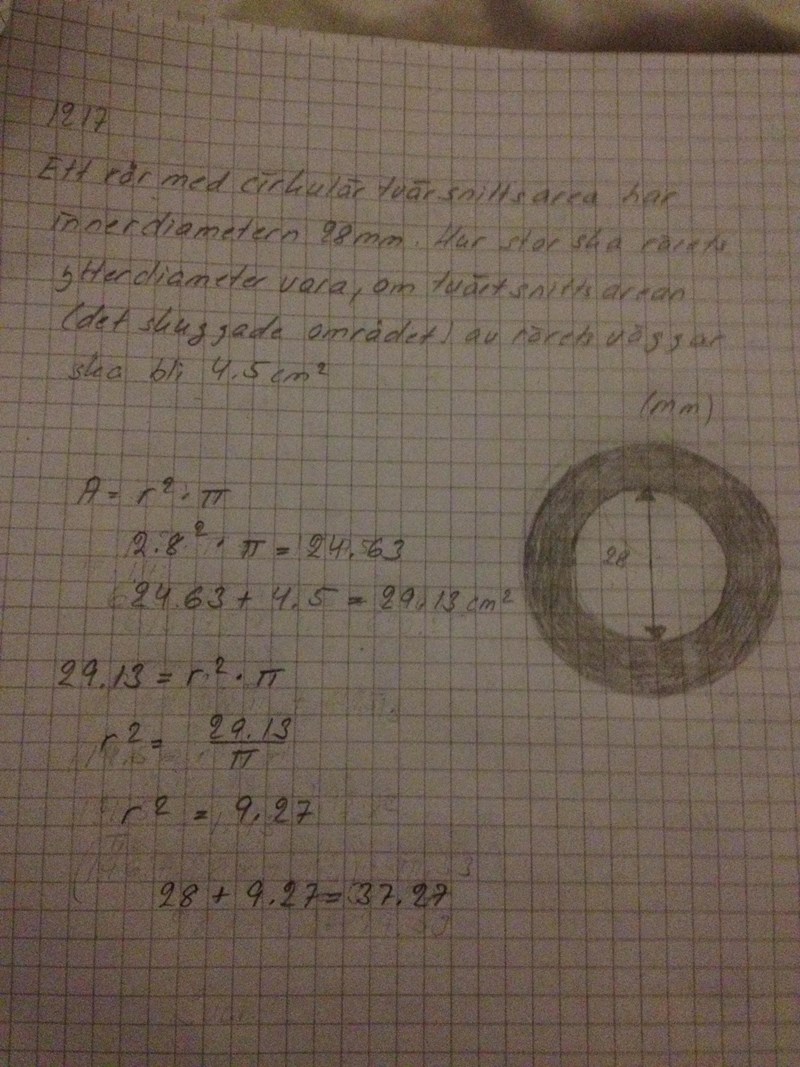 1217
Ett rör med cirkulär tvärsnittsarea har
innerdiametern 28mm. Hur stor ska rörets
ytterdiameter vara, om tvärtsnittsarean
(det skuggade området) av rörets väggar
ska bli 4.5 cm²
(mm)
28
A = r² · π
2.8² · π = 24.63
24.63 + 4.5 = 29.13 cm²
29.13 = r² · π
r² = 29.13
π
r² = 9.27
28 + 9.27 = 37.27